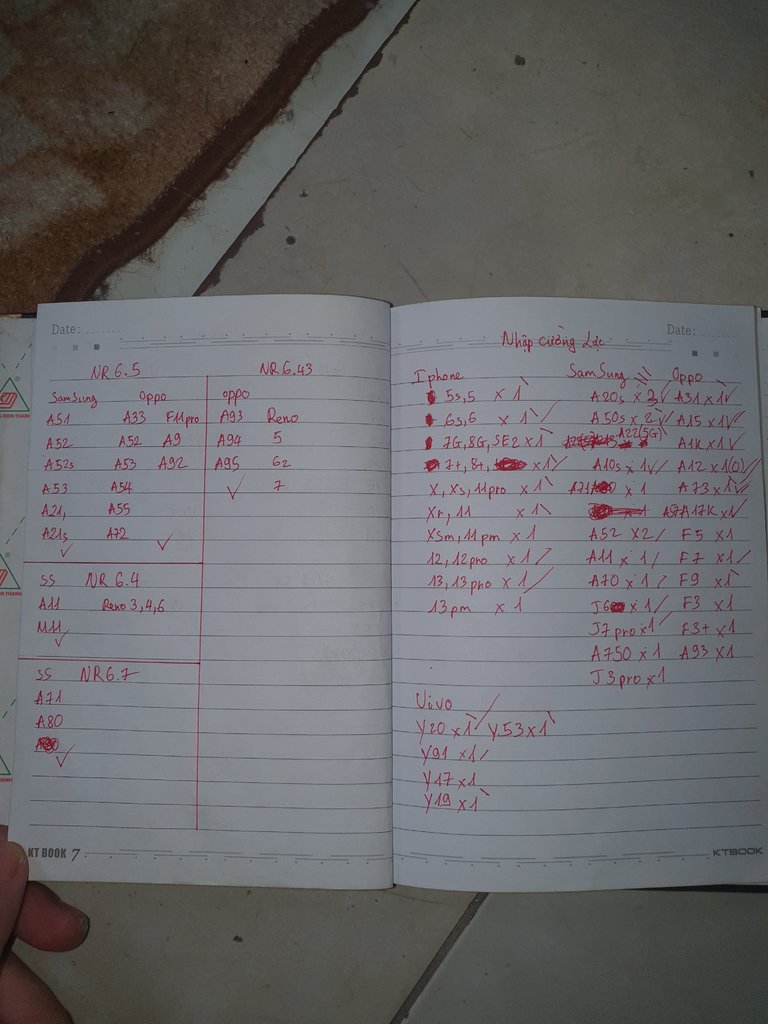 Date:
NR 6.5
NR 6.43
SamSung Oppo
oppo
A51 A33 F11pro
A93 Reno
A52 A52 A9
A94 5
A52s A53 A92
A95 6z
A53 A54
7
A21, A55
A21s A72
SS NR 6.4
A11 Reno 3,4,6
M11
SS NR 6.7
A71
A80
KT BOOK 7
Date:
Nhập cường lực
Iphone SamSung Oppo
5s,5 x 1 A20s x 2 A31 x 1
6s,6 x 1 A50s x 2 A15 x 1
7G, 8G, SE2 x 1 A22(5G) A1K x 1
7+, 8+, x 1 A10s x 1 A12 x 1(0)
X, Xs, 11pro x 1 A71 x 1 A73 x 1
Xr, 11 x 1 A17K x 1
Xsm, 11pm x 1 A52 x 2 F5 x 1
12, 12pro x 1 A11 x 1 F7 x 1
13, 13pro x 1 A70 x 1 F9 x 1
13pm x 1 J6 x 1 F3 x 1
J7pro x 1 F3+ x 1
A750 x 1 A93 x 1
J3pro x 1
Vivo
Y20 x 1 Y53 x 1
Y91 x 1
Y17 x 1
Y19 x 1
KTBOOK